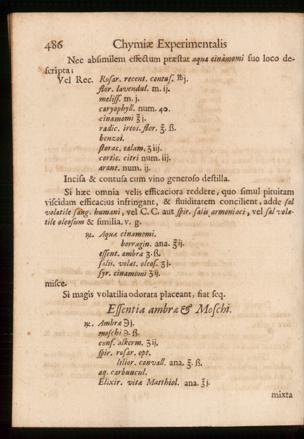 486 Chymiæ Experimentalis
Nec absimilem effectum præstat aquæ cinamomi suo loco de-
scripta;
Vel Rec. Rosar. recent. contus. ℔j.
flor. lavendul. m. ij.
meliss. m. j.
caryophyll. num. 40.
cinamomi ℥j.
radic. ireos. flor. ℥. ß.
benzoi.
storac. calam. ʒiij.
cortic. citri num. iij.
arant. num. ij.
Incisa & contusa cum vino generoso destilla.
Si hæc omnia velis efficaciora reddere, quo simul pituitam
viscidam efficacius infringant, & fluiditatem concilient, adde sal
volatile sang. humani, vel C. C. aut spir. salis armoniaci, vel sal vola-
tile oleosum & similia. v. g.
℞. Aquæ cinamomi.
borragin. ana. ℥ij.
essent. ambræ ʒ. ß.
salis. volat. oleos. ʒj.
syr. cinamomi ℥ij.
misce.
Si magis volatilia odorata placeant, fiat seq.
Essentia ambræ & Moschi.
℞. Ambræ ℈j.
moschi ℈. ß.
conf. alkerm. ʒij.
spir. rosar. opt.
lilior. convall. ana. ℥. ß.
aq. carbuncul.
Elixir. vitæ Matthiol. ana. ℥j.
mixta